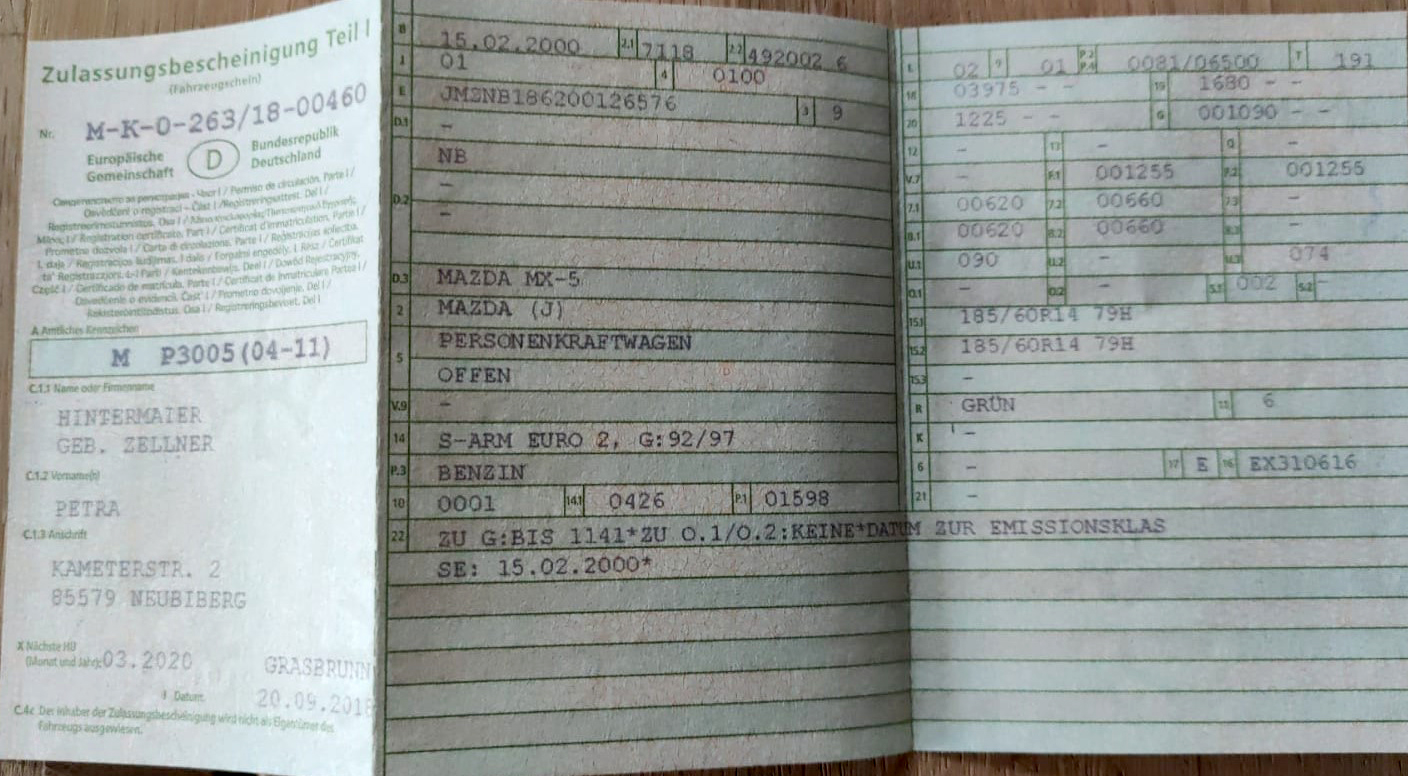 Zulassungsbescheinigung Teil I
(Fahrzeugschein)
Nr. M-K-0-263/18-00460
Europäische Gemeinschaft D Bundesrepublik Deutschland
A Amtliches Kennzeichen
M P3005(04-11)
C.1.1 Name oder Firmenname
HINTERMAIER
GEB. ZELLNER
C.1.2 Vorname(n)
PETRA
C.1.3 Anschrift
KAMETERSTR. 2
85579 NEUBIBERG
X Nächste HU
(Monat und Jahr) 03.2020 GRASBRUNN
I Datum 20.09.2018
C.4c Der Inhaber der Zulassungsbescheinigung wird nicht als Eigentümer des
Fahrzeugs ausgewiesen.
B 15.02.2000 2.1 7118 2.2 492002 6
J 01 4 0100
E JMZNB186200126576 3 9
D.1 -
NB
-
D.2 -
D.3 MAZDA MX-5
2 MAZDA (J)
5 PERSONENKRAFTWAGEN
OFFEN
V.9 -
14 S-ARM EURO 2, G:92/97
P.3 BENZIN
10 0001 14.1 0426 P.1 01598
22 ZU G:BIS 1141*ZU O.1/O.2:KEINE*DATUM ZUR EMISSIONSKLAS
SE: 15.02.2000*
L 02 9 01 P.2 P.4 0081/06500 T 191
18 03975 - - 19 1680 - -
20 1225 - - G 001090 - -
12 - 13 - Q -
V.7 - F.1 001255 F.2 001255
7.1 00620 7.2 00660 7.3 -
8.1 00620 8.2 00660 8.3 -
U.1 090 U.2 - U.3 074
O.1 - O.2 - S.1 002 S.2 -
15.1 185/60R14 79H
15.2 185/60R14 79H
15.3 -
R GRÜN 11 6
K -
6 - 17 E 16 EX310616
21 -